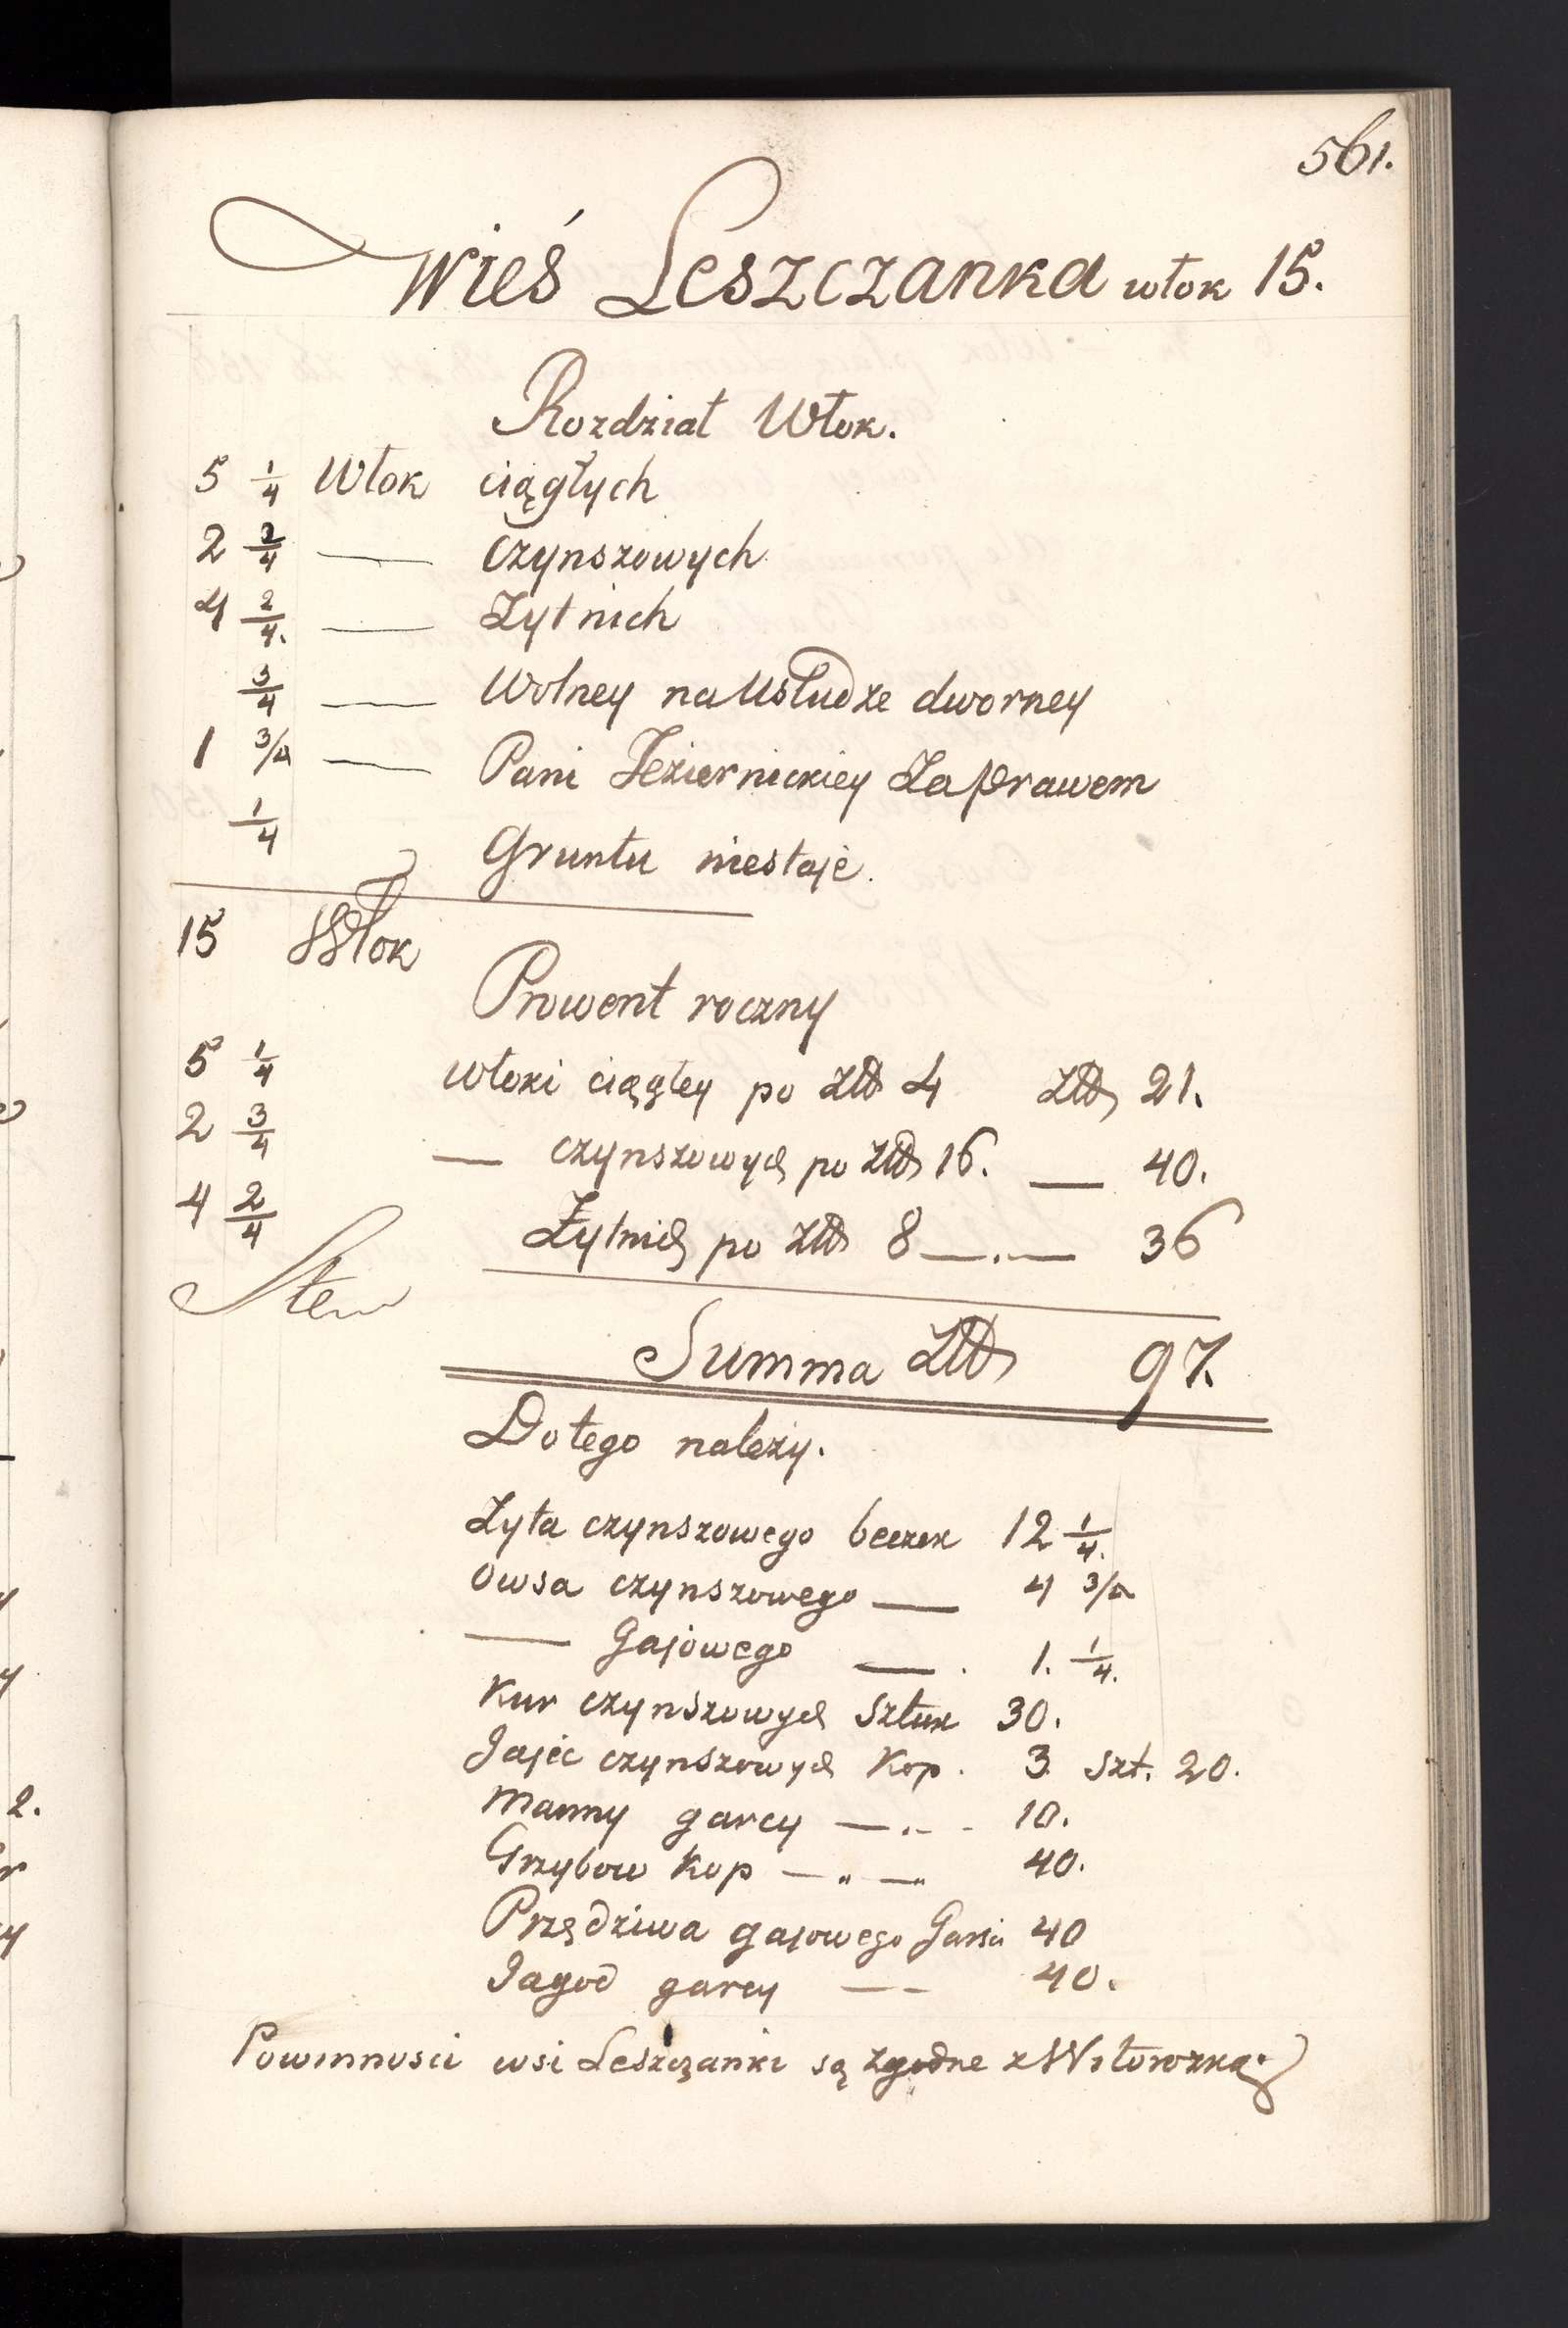 561.
Wieś Leszczanka włok 15.
Rozdział Włok.
5 1/4 Włok ciągłych
2 2/4 — czynszowych
4 2/4. — Żytnich
3/4 — Wolney na Usłudze dworney
1 3/4 — Pani Jeziernickiey Za prawem
1/4 Gruntu niestaje.
15 Włok
Prowent roczny
5 1/4 włoki ciągley po Złł 4 Złł 21.
2 3/4 — czynszowych po złł 16. — 40.
4 2/4 Żytnich po złł 8 —.— 36
Summa Złł 97.
Dotego należy.
Żyta czynszowego beczek 12 1/4.
Owsa czynszowego — 4 3/4
— Gajowego — . 1. 1/4.
Kur czynszowych Sztuk 30.
Jajec czynszowych Kop. 3 Szt. 20.
Manny garcy —..- 10.
Grzybow Kop —"—" 40.
Przędziwa gajowego 40
Jagod garcy — - 40.
Powinności wsi Leszczanki są zgodne z Witorozką.